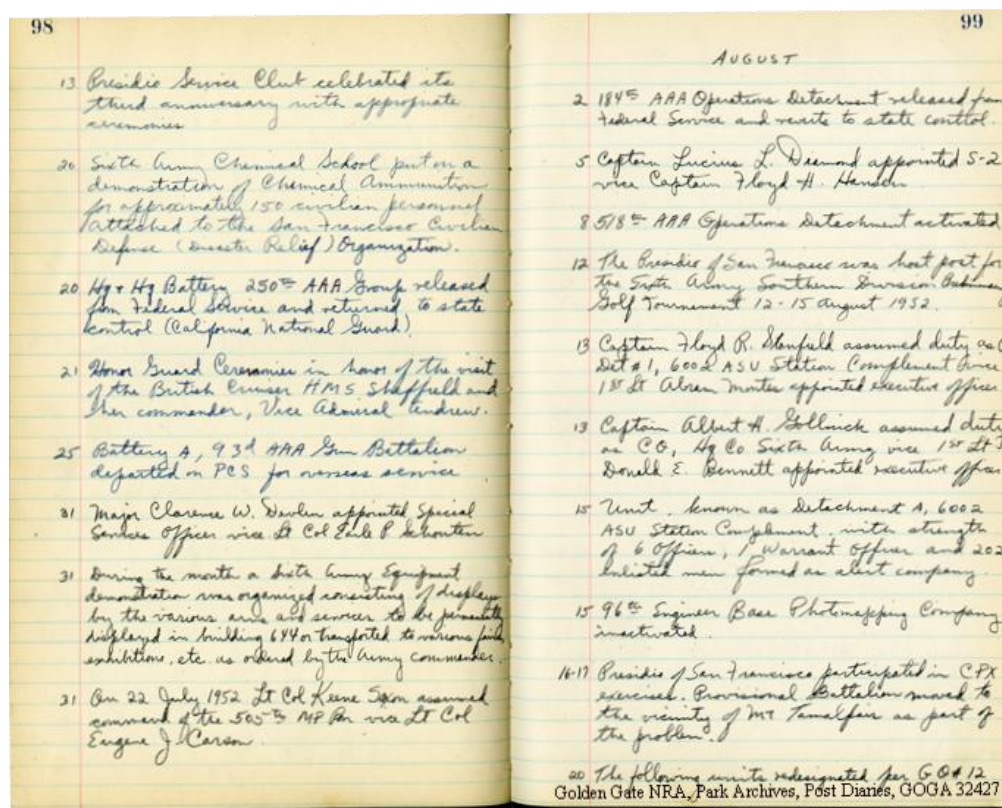 98
13 Presidio Service Club celebrated its
third anniversary with appropriate
ceremonies
20 Sixth Army Chemical School put on a
demonstration of Chemical Ammunition
for approximately 150 civilian personnel
attached to the San Francisco Civilian
Defense (Disaster Relief) Organization.
20 Hq & Hq Battery 250th AAA Group released
from Federal Service and returned to state
control (California National Guard)
21 Honor Guard Ceremonies in honor of the visit
of the British Cruiser HMS Sheffield and
her commander, Vice Admiral Andrew.
25 Battery A, 93d AAA Gun Battalion
departed on PCS for overseas service
31 Major Clarence W. Devlin appointed Special
Services Officer vice Lt Col Earle P Schouten
31 During the month a Sixth Army Equipment
demonstration was organized consisting of displays
by the various arms and services to be permanently
displayed in building 644 or transported to various fairs,
exhibitions, etc. as ordered by the Army commander.
31 On 22 July 1952 Lt Col Keene Saxon assumed
command of the 505th MP Bn vice Lt Col
Eugene J. Carson.
99
AUGUST
2 184th AAA Operations Detachment released from
Federal Service and reverts to state control.
5 Captain Lucius L. Diamond appointed S-2
vice Captain Floyd H. Hansen
8 518th AAA Operations Detachment activated
12 The Presidio of San Francisco was host post for
the Sixth Army Southern Division
Golf Tournament 12-15 August 1952.
13 Captain Floyd R. Stanfield assumed duty as C
Det #1, 6002 ASU Station Complement vice
1st Lt Abram Montes appointed executive officer
13 Captain Albert H. Gollnick assumed duties
as CO, Hq Co Sixth Army vice 1st Lt
Donald E. Bennett appointed executive officer
15 Unit, known as Detachment A, 6002
ASU Station Complement, with strength
of 6 Officers, 1 Warrant Officer and 202
enlisted men formed as alert company.
15 96th Engineer Base Photomapping Company
inactivated.
16-17 Presidio of San Francisco participated in CPX
exercises. Provisional Battalion moved to
the vicinity of Mt Tamalpais as part of
the problem.
20 The following units redesignated per GO #12
Golden Gate NRA, Park Archives, Post Diaries, GOGA 32427